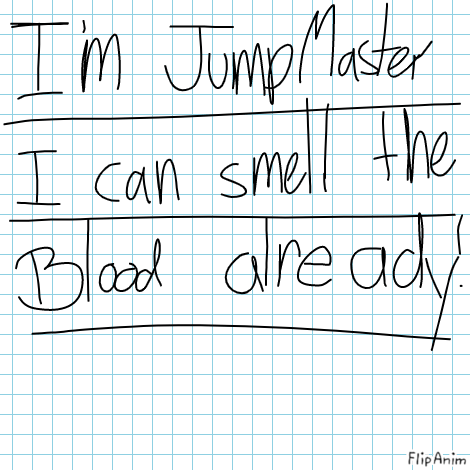 I'm JumpMaster
I can smell the
Blood already!
FlipAnim